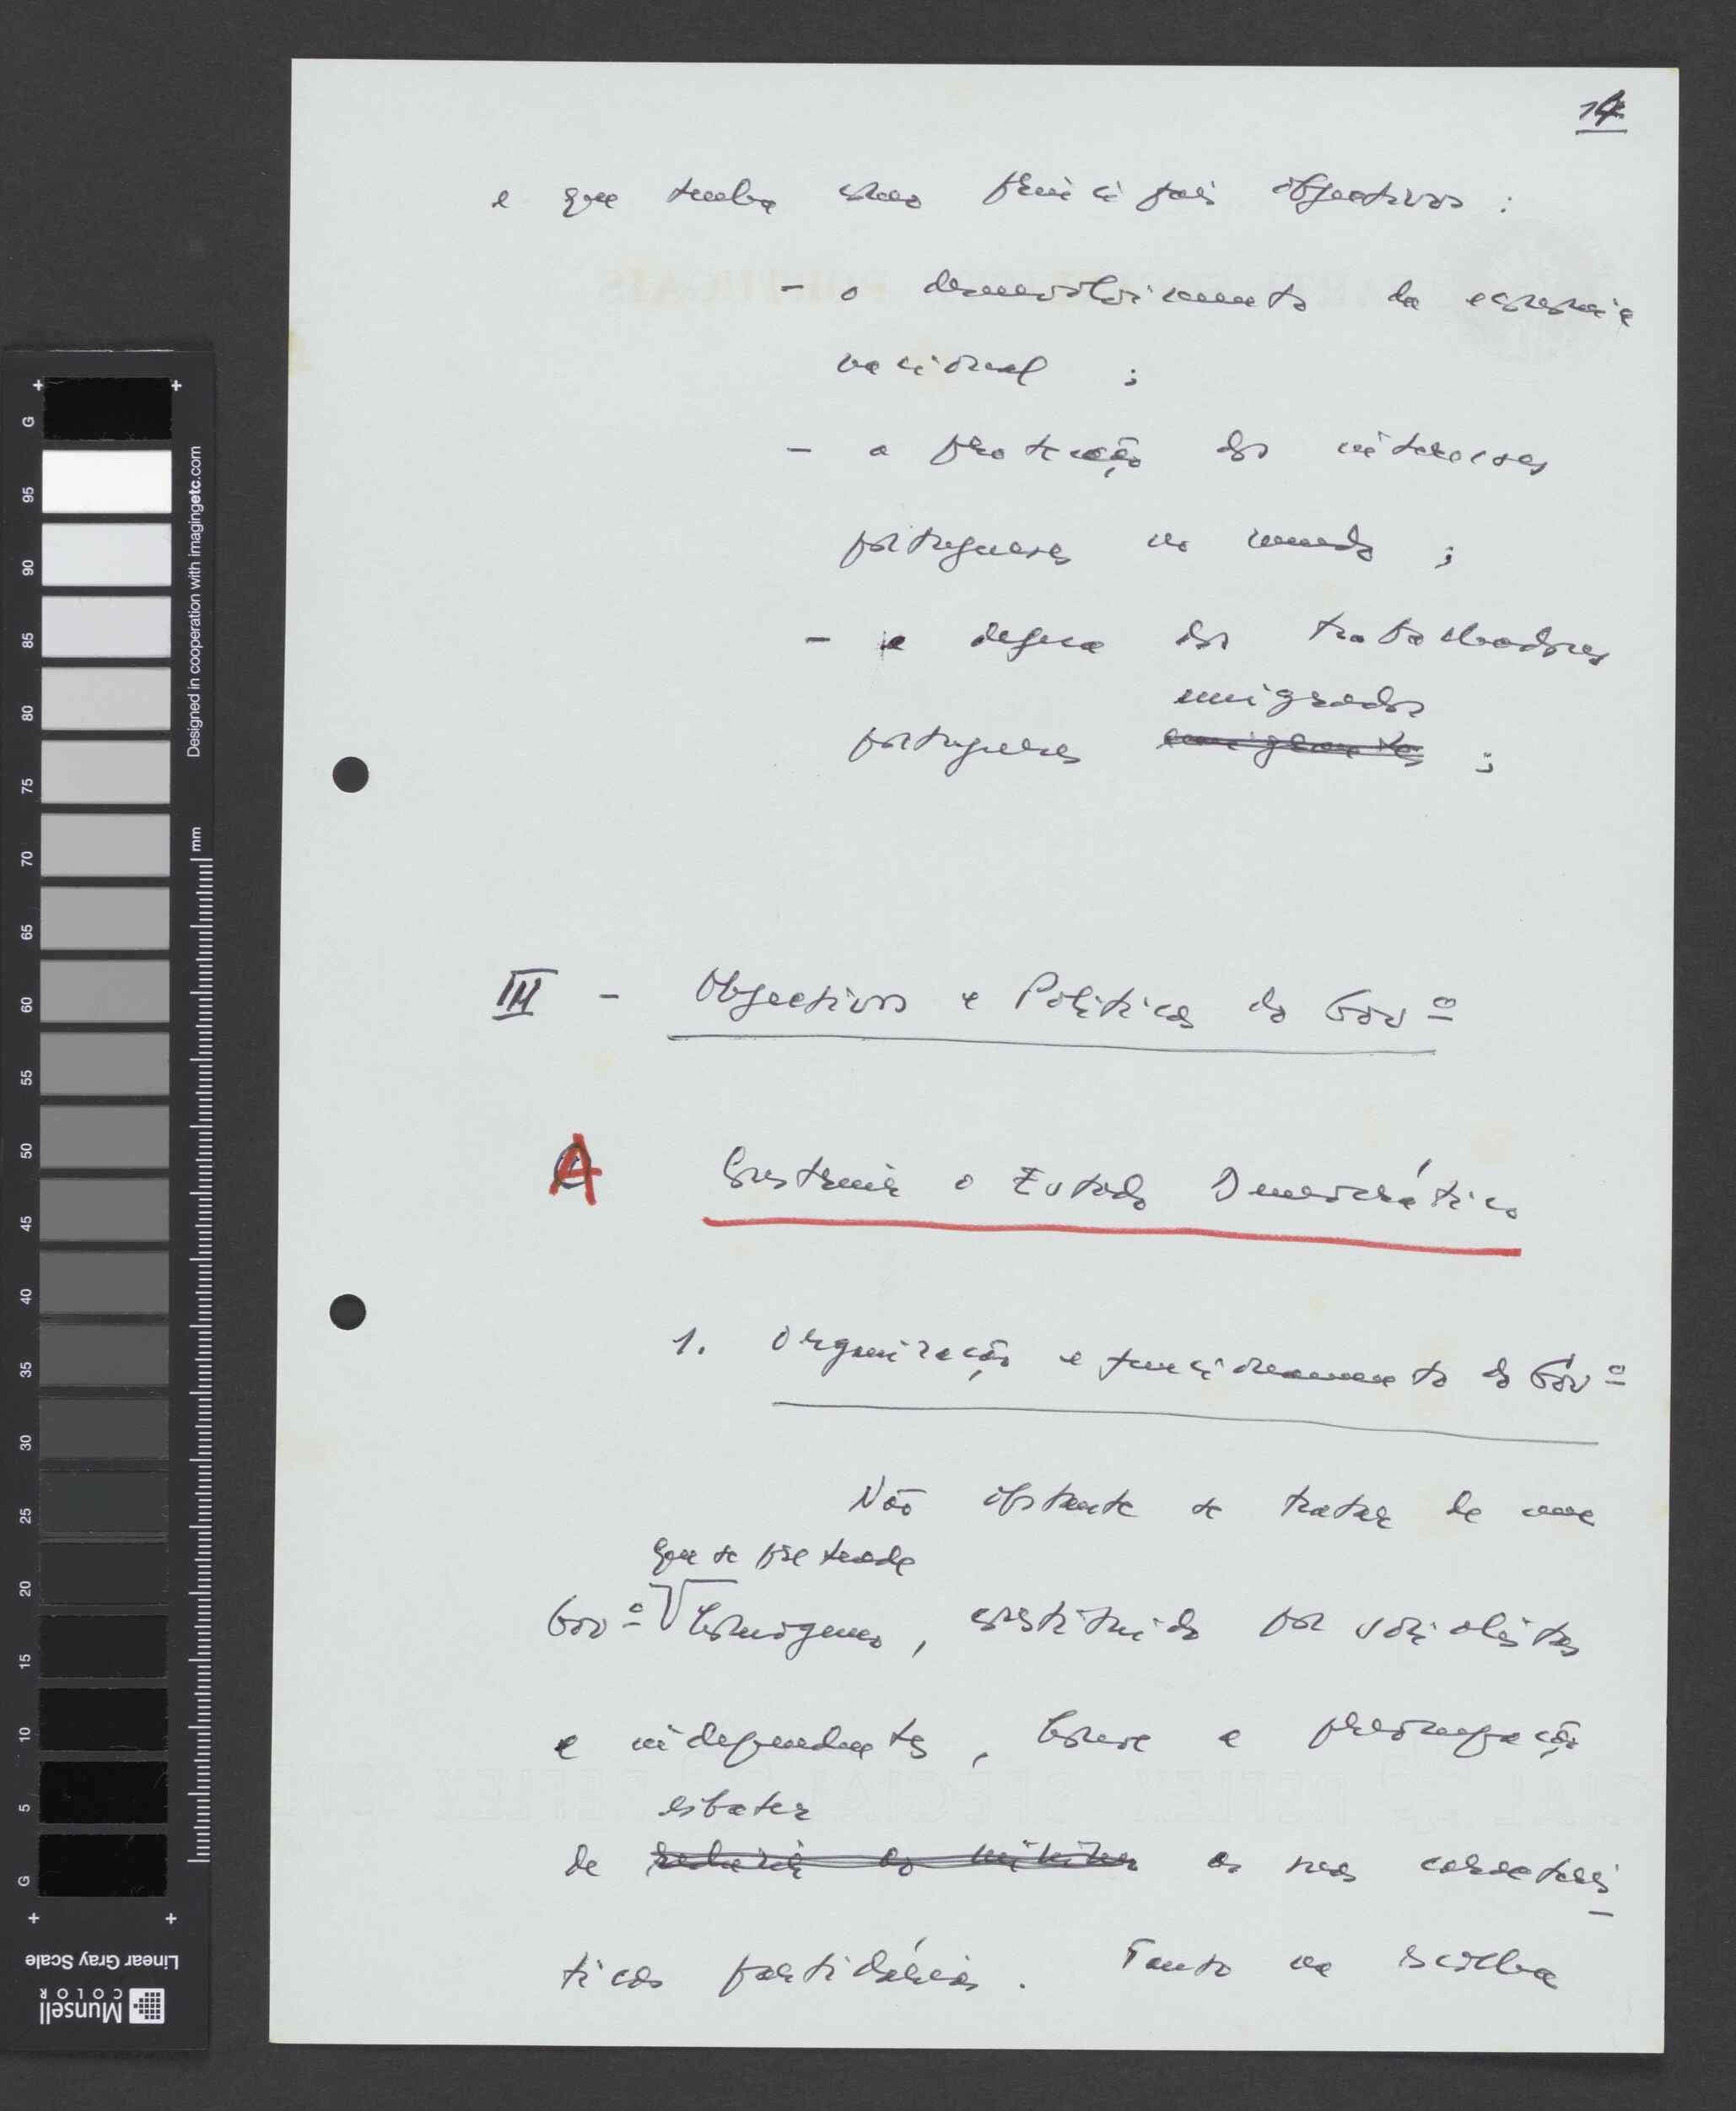 14
e que tenha como principais objectivos :
- o desenvolvimento da economia
nacional ;
- a protecção dos interesses
portugueses no mundo ;
- a defesa dos trabalhadores
emigrados
portugueses emigrantes ;
III - Objectivos e Políticas do Govº
A Construir o Estado Democrático
1. Organização e funcionamento do Govº
Não obstante se tratar de um
que se pretende
Govº homogéneo, constituido por socialistas
e independentes, houve a preocupação
esbater
de reduzir ao mínimo as suas caracterís
ticas partidárias. Tanto na escolha
G 95 90 85 80 75 70 65 60 55 50 45 40 35 30 25 20 15 10 5 G
Designed in cooperation with imagingetc.com
mm
Linear Gray Scale
Munsell
COLOR